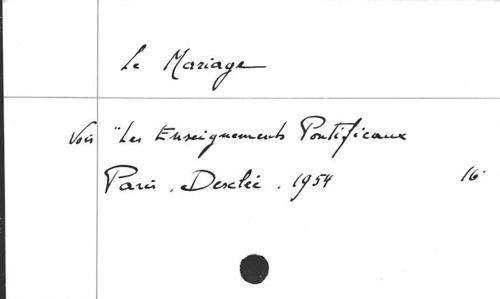 Le Mariage
Voir "Les Enseignements Pontificaux
Paris . Desclée . 1954 16°